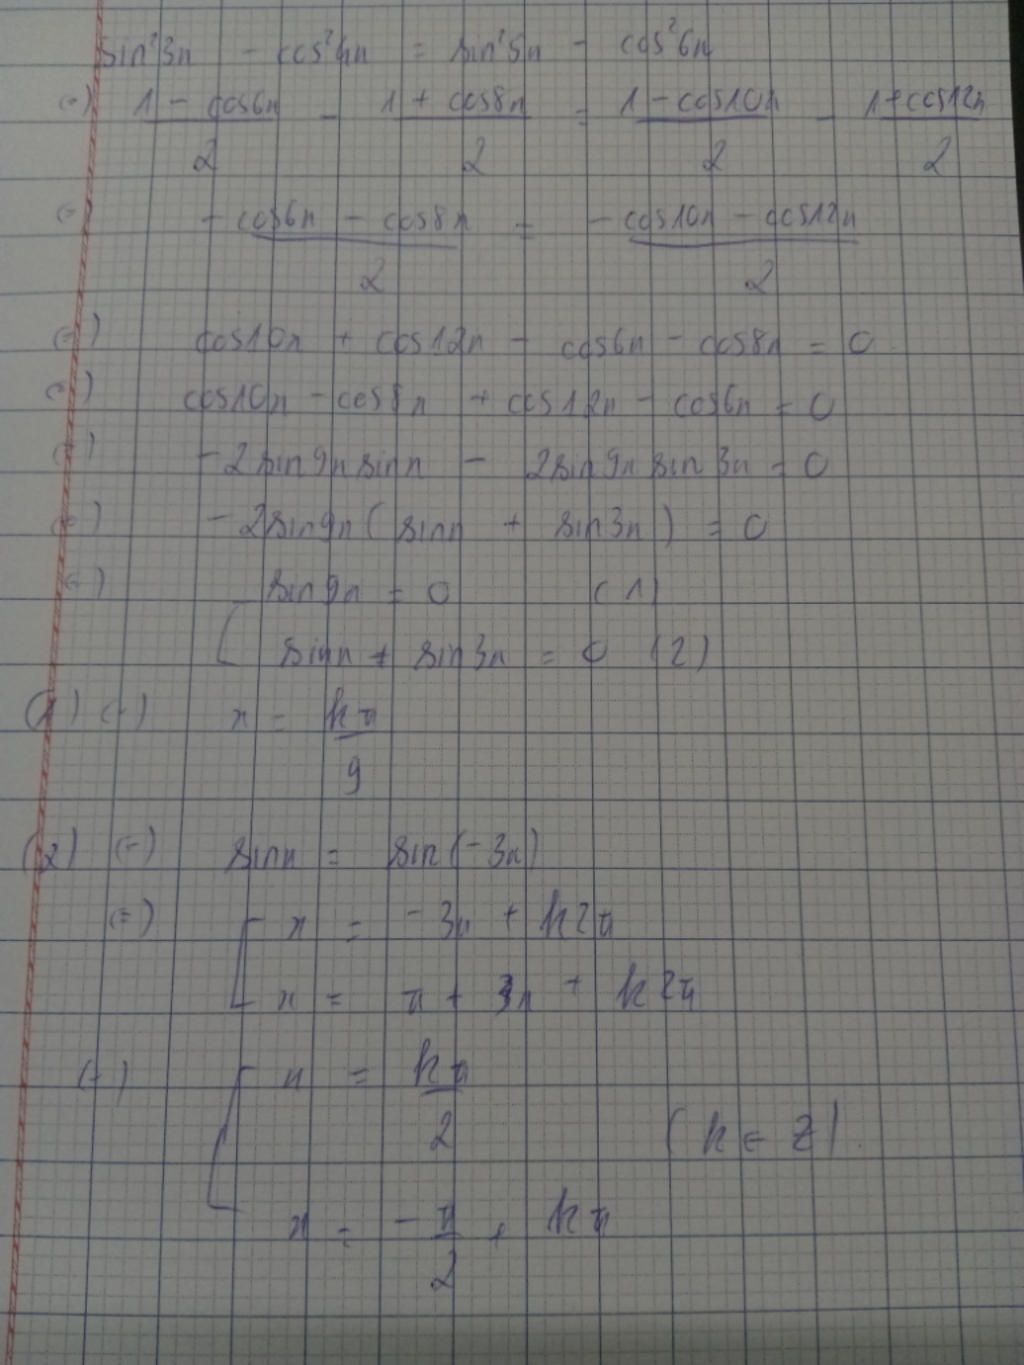 sin²3x - cos²4x = sin²5x - cos²6x
(=) 1 - cos6x / 2 - 1 + cos8x / 2 = 1 - cos10x / 2 - 1 + cos12x / 2
(=) - cos6x - cos8x / 2 = - cos10x - cos12x / 2
(=) cos10x + cos12x - cos6x - cos8x = 0
(=) cos10x - cos8x + cos12x - cos6x = 0
(=) - 2sin9x sinx - 2sin9x sin3x = 0
(=) - 2sin9x ( sinx + sin3x ) = 0
(=) [ sin9x = 0 (1)
sinx + sin3x = 0 (2)
(1) (=) x = kπ / 9
(2) (=) sinx = sin(-3x)
(=) [ x = - 3x + k2π
x = π + 3x + k2π
(=) [ x = kπ / 2 (k ∈ Z).
x = - π / 2 + kπ